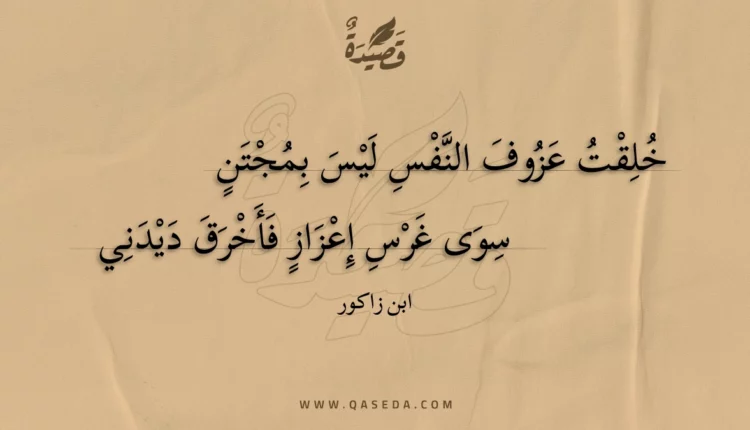 قَصِيدَةٌ
خُلِقْتُ عَزُوفَ النَّفْسِ لَيْسَ بِمُجْتَنٍ
سِوَى غَرْسِ إِعْزَازٍ فَأَخْرَقَ دَيْدَنِي
ابن زاكور
WWW.QASEDA.COM